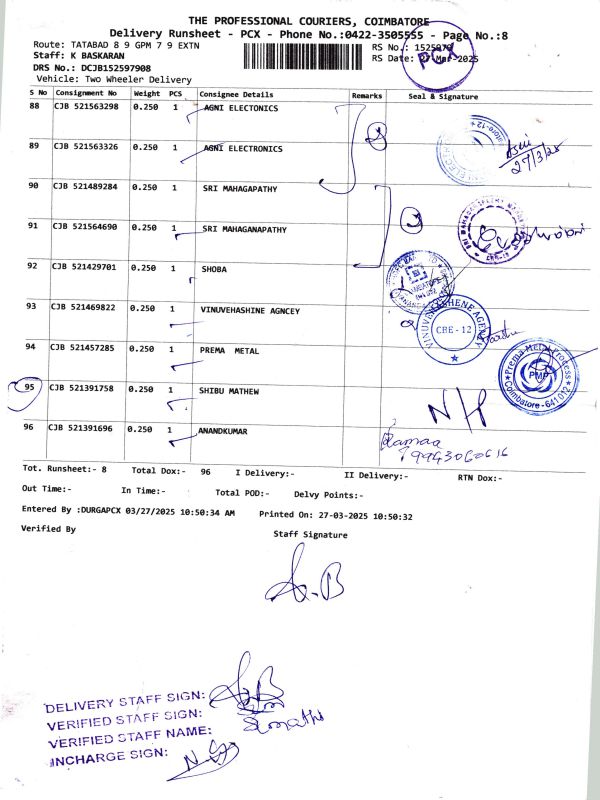 THE PROFESSIONAL COURIERS, COIMBATORE
Delivery Runsheet - PCX - Phone No.:0422-3505555 - Page No.:8
Route: TATABAD 8 9 GPM 7 9 EXTN
RS No.:
Staff: K BASKARAN
RS Date: 27-Mar-2025
PCX
DRS No.: DCJB152597908
Vehicle: Two Wheeler Delivery
S No Consignment No Weight PCS Consignee Details Remarks Seal & Signature
88 CJB 521563298 0.250 1 AGNI ELECTONICS
89 CJB 521563326 0.250 1 AGNI ELECTRONICS
27/3/25
90 CJB 521489284 0.250 1 SRI MAHAGAPATHY
91 CJB 521564690 0.250 1 SRI MAHAGANAPATHY
92 CJB 521429701 0.250 1 SHOBA
93 CJB 521469822 0.250 1 VINUVEHASHINE AGNCEY
VINUVEHASHENE AGENCY
CBE - 12
94 CJB 521457285 0.250 1 PREMA METAL
Prema Metal Process
PMP
Coimbatore - 641 012
95 CJB 521391758 0.250 1 SHIBU MATHEW
96 CJB 521391696 0.250 1 ANANDKUMAR
Tot. Runsheet:- 8 Total Dox:- 96 I Delivery:- II Delivery:- RTN Dox:-
Out Time:- In Time:- Total POD:- Delvy Points:-
Entered By :DURGAPCX 03/27/2025 10:50:34 AM Printed On: 27-03-2025 10:50:32
Verified By
Staff Signature
DELIVERY STAFF SIGN:
VERIFIED STAFF SIGN:
VERIFIED STAFF NAME:
INCHARGE SIGN: